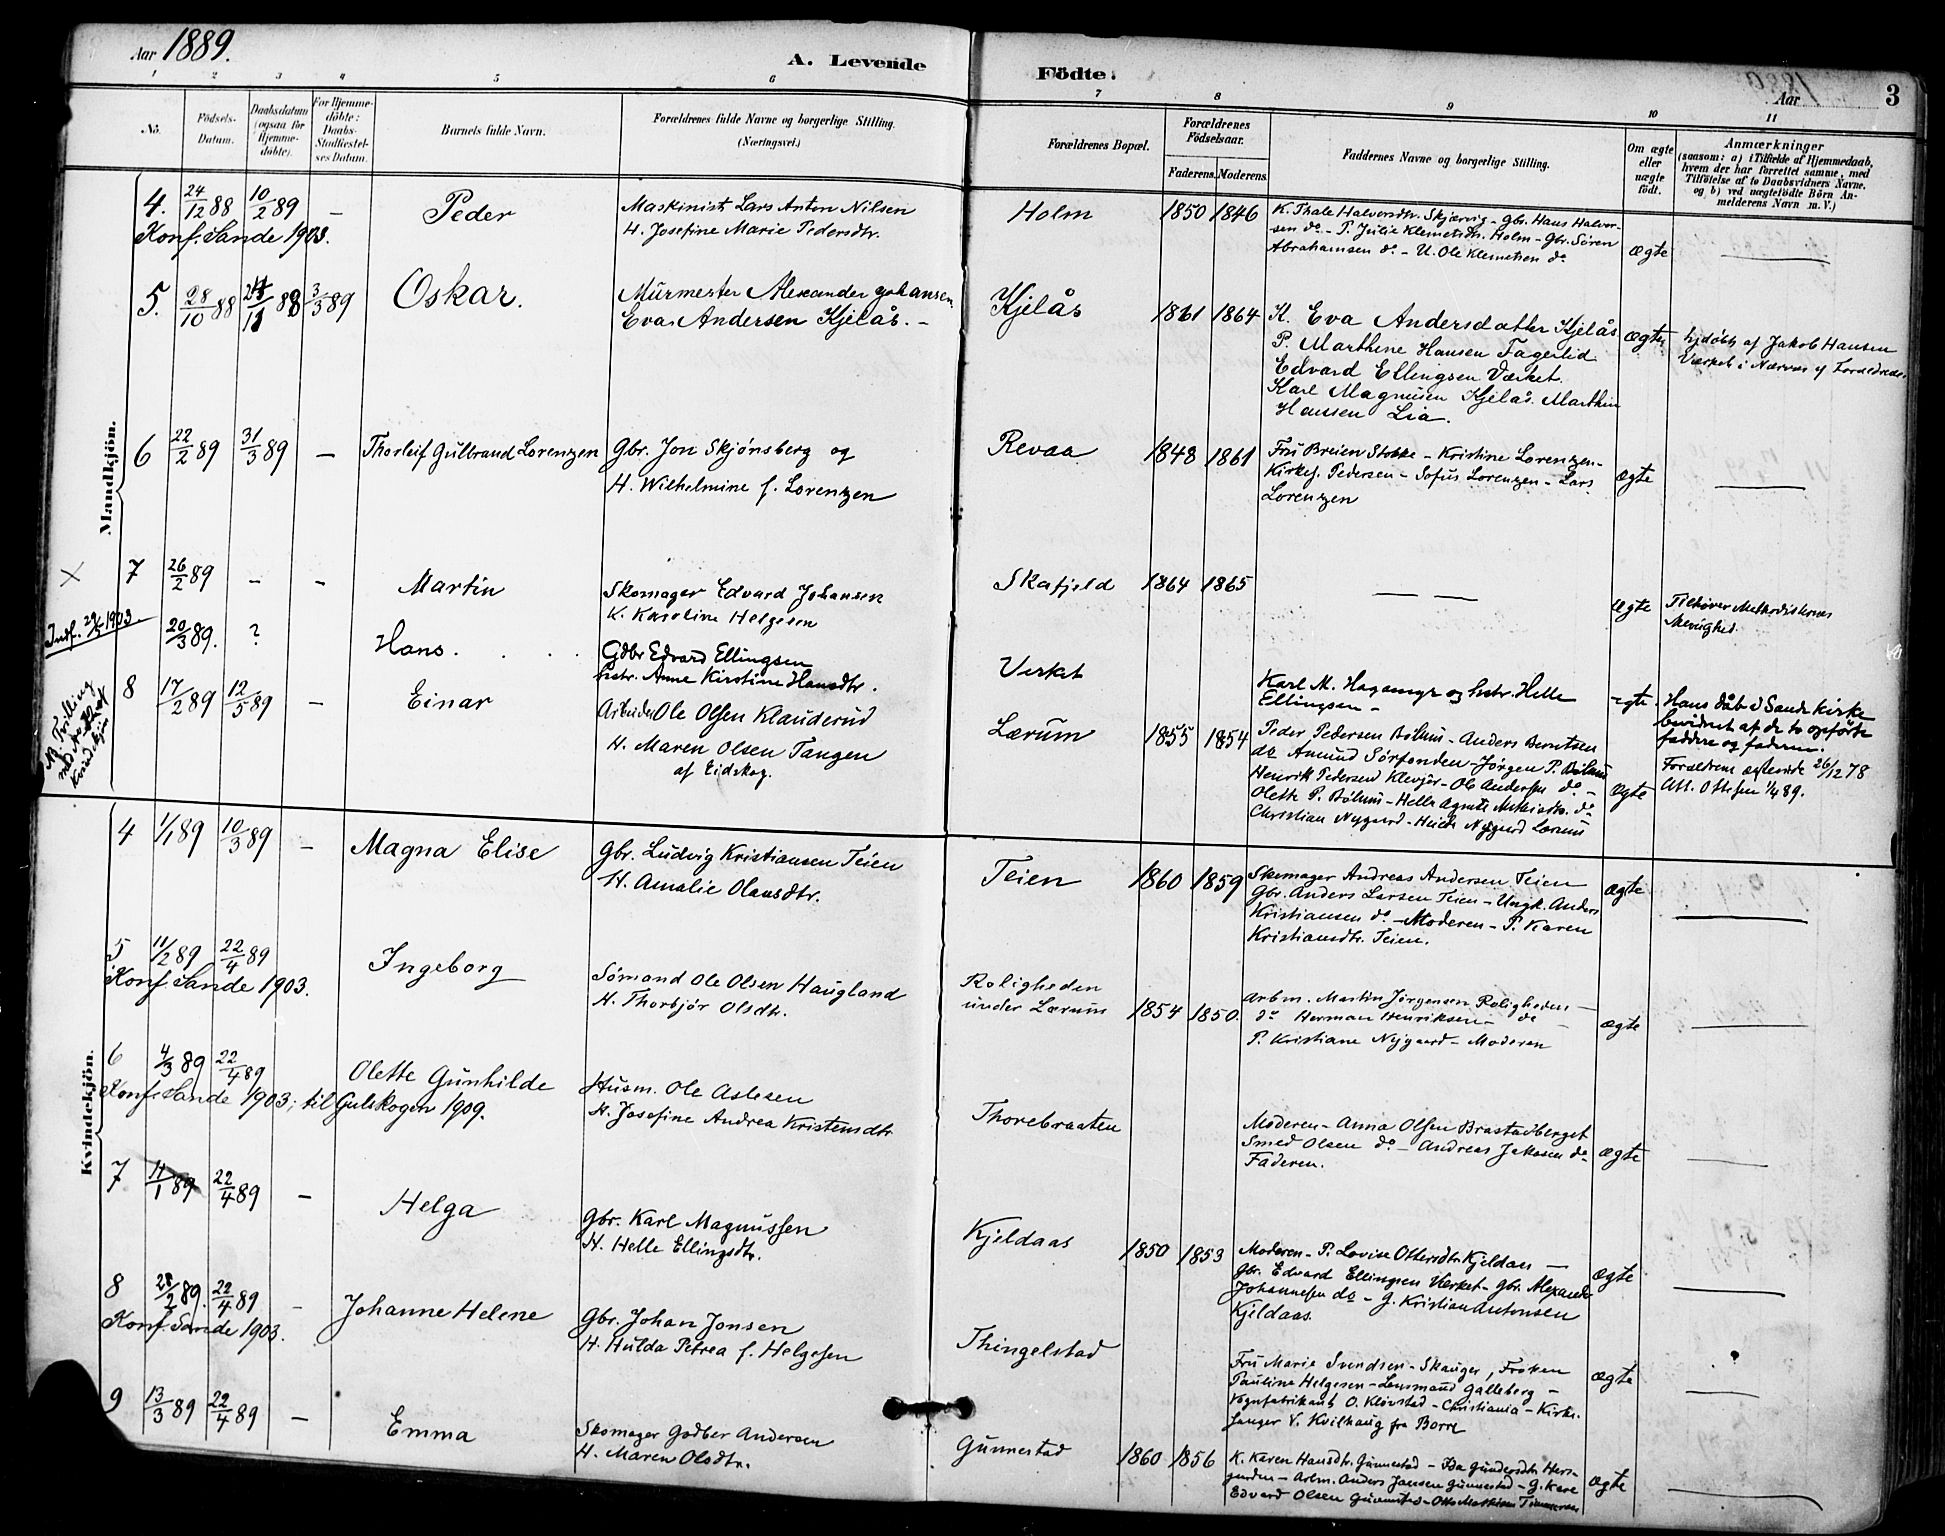 Aar 1889.
A. Levende
Födte.
Aar
3
1 2 3 4 5 6 7 8 9 10 11
No.
Födsels-
Datum.
Daabsdatum
(ogsaa for
Hjemme-
døbte).
For Hjemme-
döbte:
Daabs-
Stadfæstel-
ses Datum.
Barnets fulde Navn.
Forældrenes fulde Navne og borgerlige Stilling.
(Næringsvei.)
Forældrenes Bopæl.
Forældrenes
Födselsaar.
Faderens. Moderens.
Faddernes Navne og borgerlige Stilling.
Om ægte
eller
uægte
födt.
Anmærkninger
(saasom: a) i Tilfælde af Hjemmedaab,
hvem der har forrettet samme, med
Tilföielse af to Daabsvidners Navne,
og b) ved uægtefödte Börn An-
melderens Navn m. V.)
Mandkjön.
4. 24/12 88 10/2 89 — Peder
Konf. Sande 1903.
Maskinist Lars Anton Nilsen
H. Josefine Marie Pedersdtr.
Holm 1850 1846
K. Thale Halvorsdtr. Skjærvig - Gbr. Hans Halvor-
sen do - P. Julie Klemetsdtr. Holm - Gbr. Sören
Abrahamsen do - U. Ole Klemetsen do
Ægte
5. 28/10 88 88 3/3 89 Oskar.
Murmester Alexander Johansen
Eva Andersen Kjelås. -
Kjelås 1861 1864
K. Eva Andersdatter Kjelås
P. Marthine Hansen Fagerlid
Edvard Ellingsen Værket.
Karl Magnusen Kjelås. Marthin
Hansen Lia.
Ægte
hjdöbt af Jakob Hansen
Værket i Nærvær af Forældrene
6 22/2 89 31/3 89 — Thorleif Gulbrand Lorenzen
Gbr. Jon Skjønsberg og
H. Wilhelmine f. Lorenzen
Revaa 1848 1861
Fru Breien Stokke - Kristine Lorenzen -
Kirkes. Pedersen - Sofus Lorenzen - Lars
Lorenzen
Ægte
× 7 26/2 89 - - Martin
Skomager Edvard Johansen
K. Karoline Helgesen
Skafjeld 1864 1865
— —
Ægte
Tilhører Methodisternes
Menighed.
Indf. 29/5 1903
20/3 89. ? Hans.
Gdbr Edvard Ellingsen
hstr. Anne Kirstine Hansdtr.
Verket
Karl M. Hagamyr og hstr. Helle
Ellingsen -
Ægte
Hans dåb i Sande kirke
bevidnet af de to opførte
faddere og faderen.
NB. Tvilling
med
Kvindkjøn
8 17/2 89 12/5 89 — Einar
Arbeider Ole Olsen Klauderud
H. Maren Olsen Tangen
af Eidskog.
Lærum 1855 1854
Peder Pedersen Bølum - Anders Berntsen
do Amund Sørfonden - Jørgen P. Bølum
Henrik Pedersen Klevjer - Ole Andersen do -
Olette P. Bølum - Helle Agnete do
Christian Nygaard - Nygaard Lærum
Ægte
Forældrene ægteviede 26/12 78
Att. Ottesen 1/4 89.
Kvindekjön.
4 1/1 89 10/3 89 — Magna Elise
Gbr. Ludvig Kristiansen Teien
H. Amalie Olausdtr.
Teien 1860 1859
Skomager Andreas Andersen Teien
Gbr. Anders Larsen Teien - Ungk. Anders
Kristiansen do - Moderen - P. Karen
Kristiansdtr. Teien.
Ægte
5 11/2 89 22/4 89 Ingeborg
Konf. Sande 1903.
Sömand Ole Olsen Haugland
H. Thorbjör Olsdtr.
Roligheden
under Lærum 1854 1850.
Arbm. Martin Jørgensen Roligheden —
do Herman Henriksen - do —
P. Kristiane Nygaard - Moderen
Ægte
6 4/3 89 22/4 89 Olette Gunhilde
Konf. Sande 1903; til Gulskogen 1909.
Husm. Ole Aslesen
H. Josefine Andrea Kristensdtr
Thorebraaten
Moderen - Anna Olsen Brastadberget
Smed Olsen do - Andreas Jakosen do
Faderen.
Ægte
7 11/1 89 22/4 89 — Helga
Gbr. Karl Magnussen
H. Helle Ellingsdtr.
Kjeldaas 1850 1853
Moderen - P. Lovise Ottersdtr. Kjeldaas —
Gbr. Edvard Ellingsen Værket - Gbr. Alexander
Johannesen do - G. Kristian Antonsen
Kjeldaas.
Ægte
8 28/2 89. 22/4 89 — Johanne Helene
Konf. Sande 1903.
Gbr. Johan Jonsen
H. Hulda Petrea f. Helgesen
Thingelstad
Fru Marie Svendsen - Skauger, Frøken
Pauline Helgesen - Lensmand Galleberg -
Vognfabrikant O. Kløvstad - Christiania - Kirke-
sanger V. Kvilhaug fra Borre
Ægte
9 13/3 89 22/4 89 — Emma
Skomager Godber Andersen
H. Maren Olsdtr.
Gunnestad 1860 1856
K. Karen Hansdtr. Gunnestad - Ida Gundersdtr.
- Arbm. Anders Jansen Gunnestad - G. Kare
Edvard Olsen Gunnestad - Otto Mathisen
Ægte